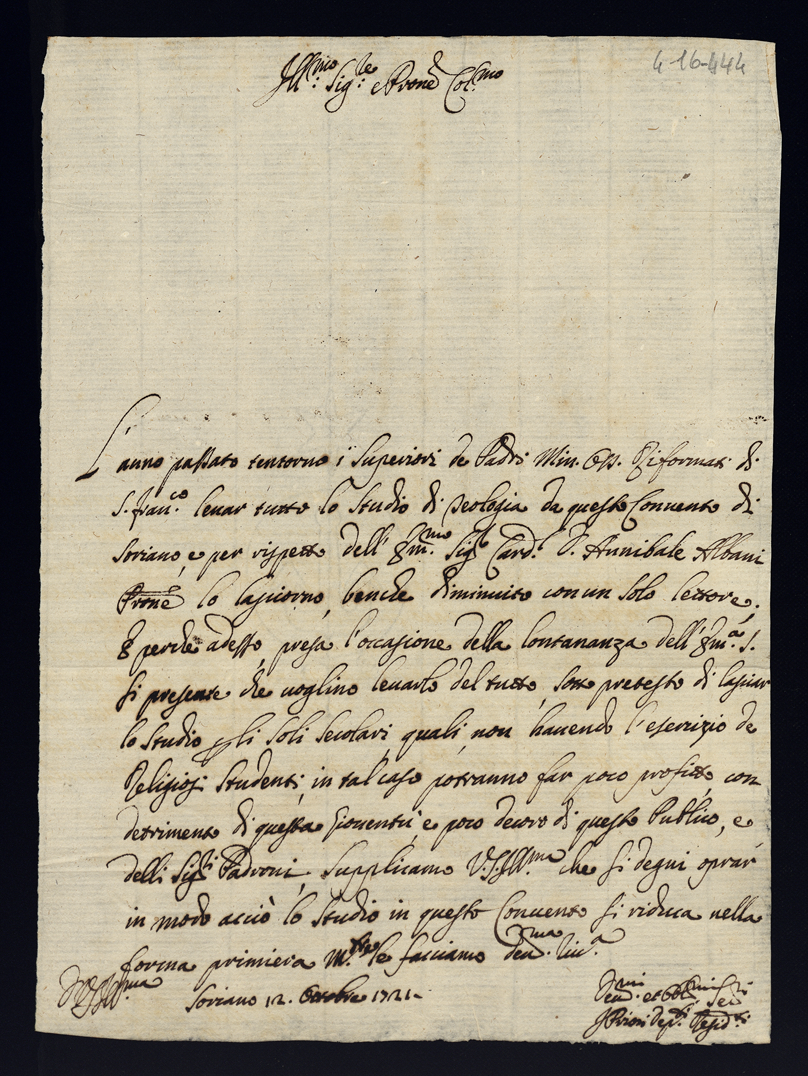 4-16-444
Ill:mo Sig:re e Prone Col:mo
L'anno passato tentorno i Superiori de Padri Min. Oss. Riformati di
S. Fran.co levar tutto lo Studio di Teologia da questo Convento di
Soriano, e per rispetto dell' Em.mo Sig.r Card.l D. Annibale Albani
Prone lo lasciorno, benche diminuito con un solo lettore.
E perche adesso, presa l'occasione della lontananza dell' Em.a S.
si presente che voglino levarlo del tutto, sotto pretesto di lasciar
lo Studio p gli soli secolari, quali, non havendo l'esercizio de
Religiosi Studenti, in tal caso potranno far poco profitto, con
detrimento di questa Gioventù, e poco decoro di questo Publico, e
delli Sig.ri Padroni. Supplicamo V.S. Ill.ma che si degni oprar
in modo acciò lo Studio in questo Convento si riduca nella
forma primiera, m.tre le facciamo dev.ma riv.a
D V S Ill.ma
Soriano 12. Ottobre 1721.
Dev.mi et Obl.mi Se.ri
Priori dep.ti Resid.ti